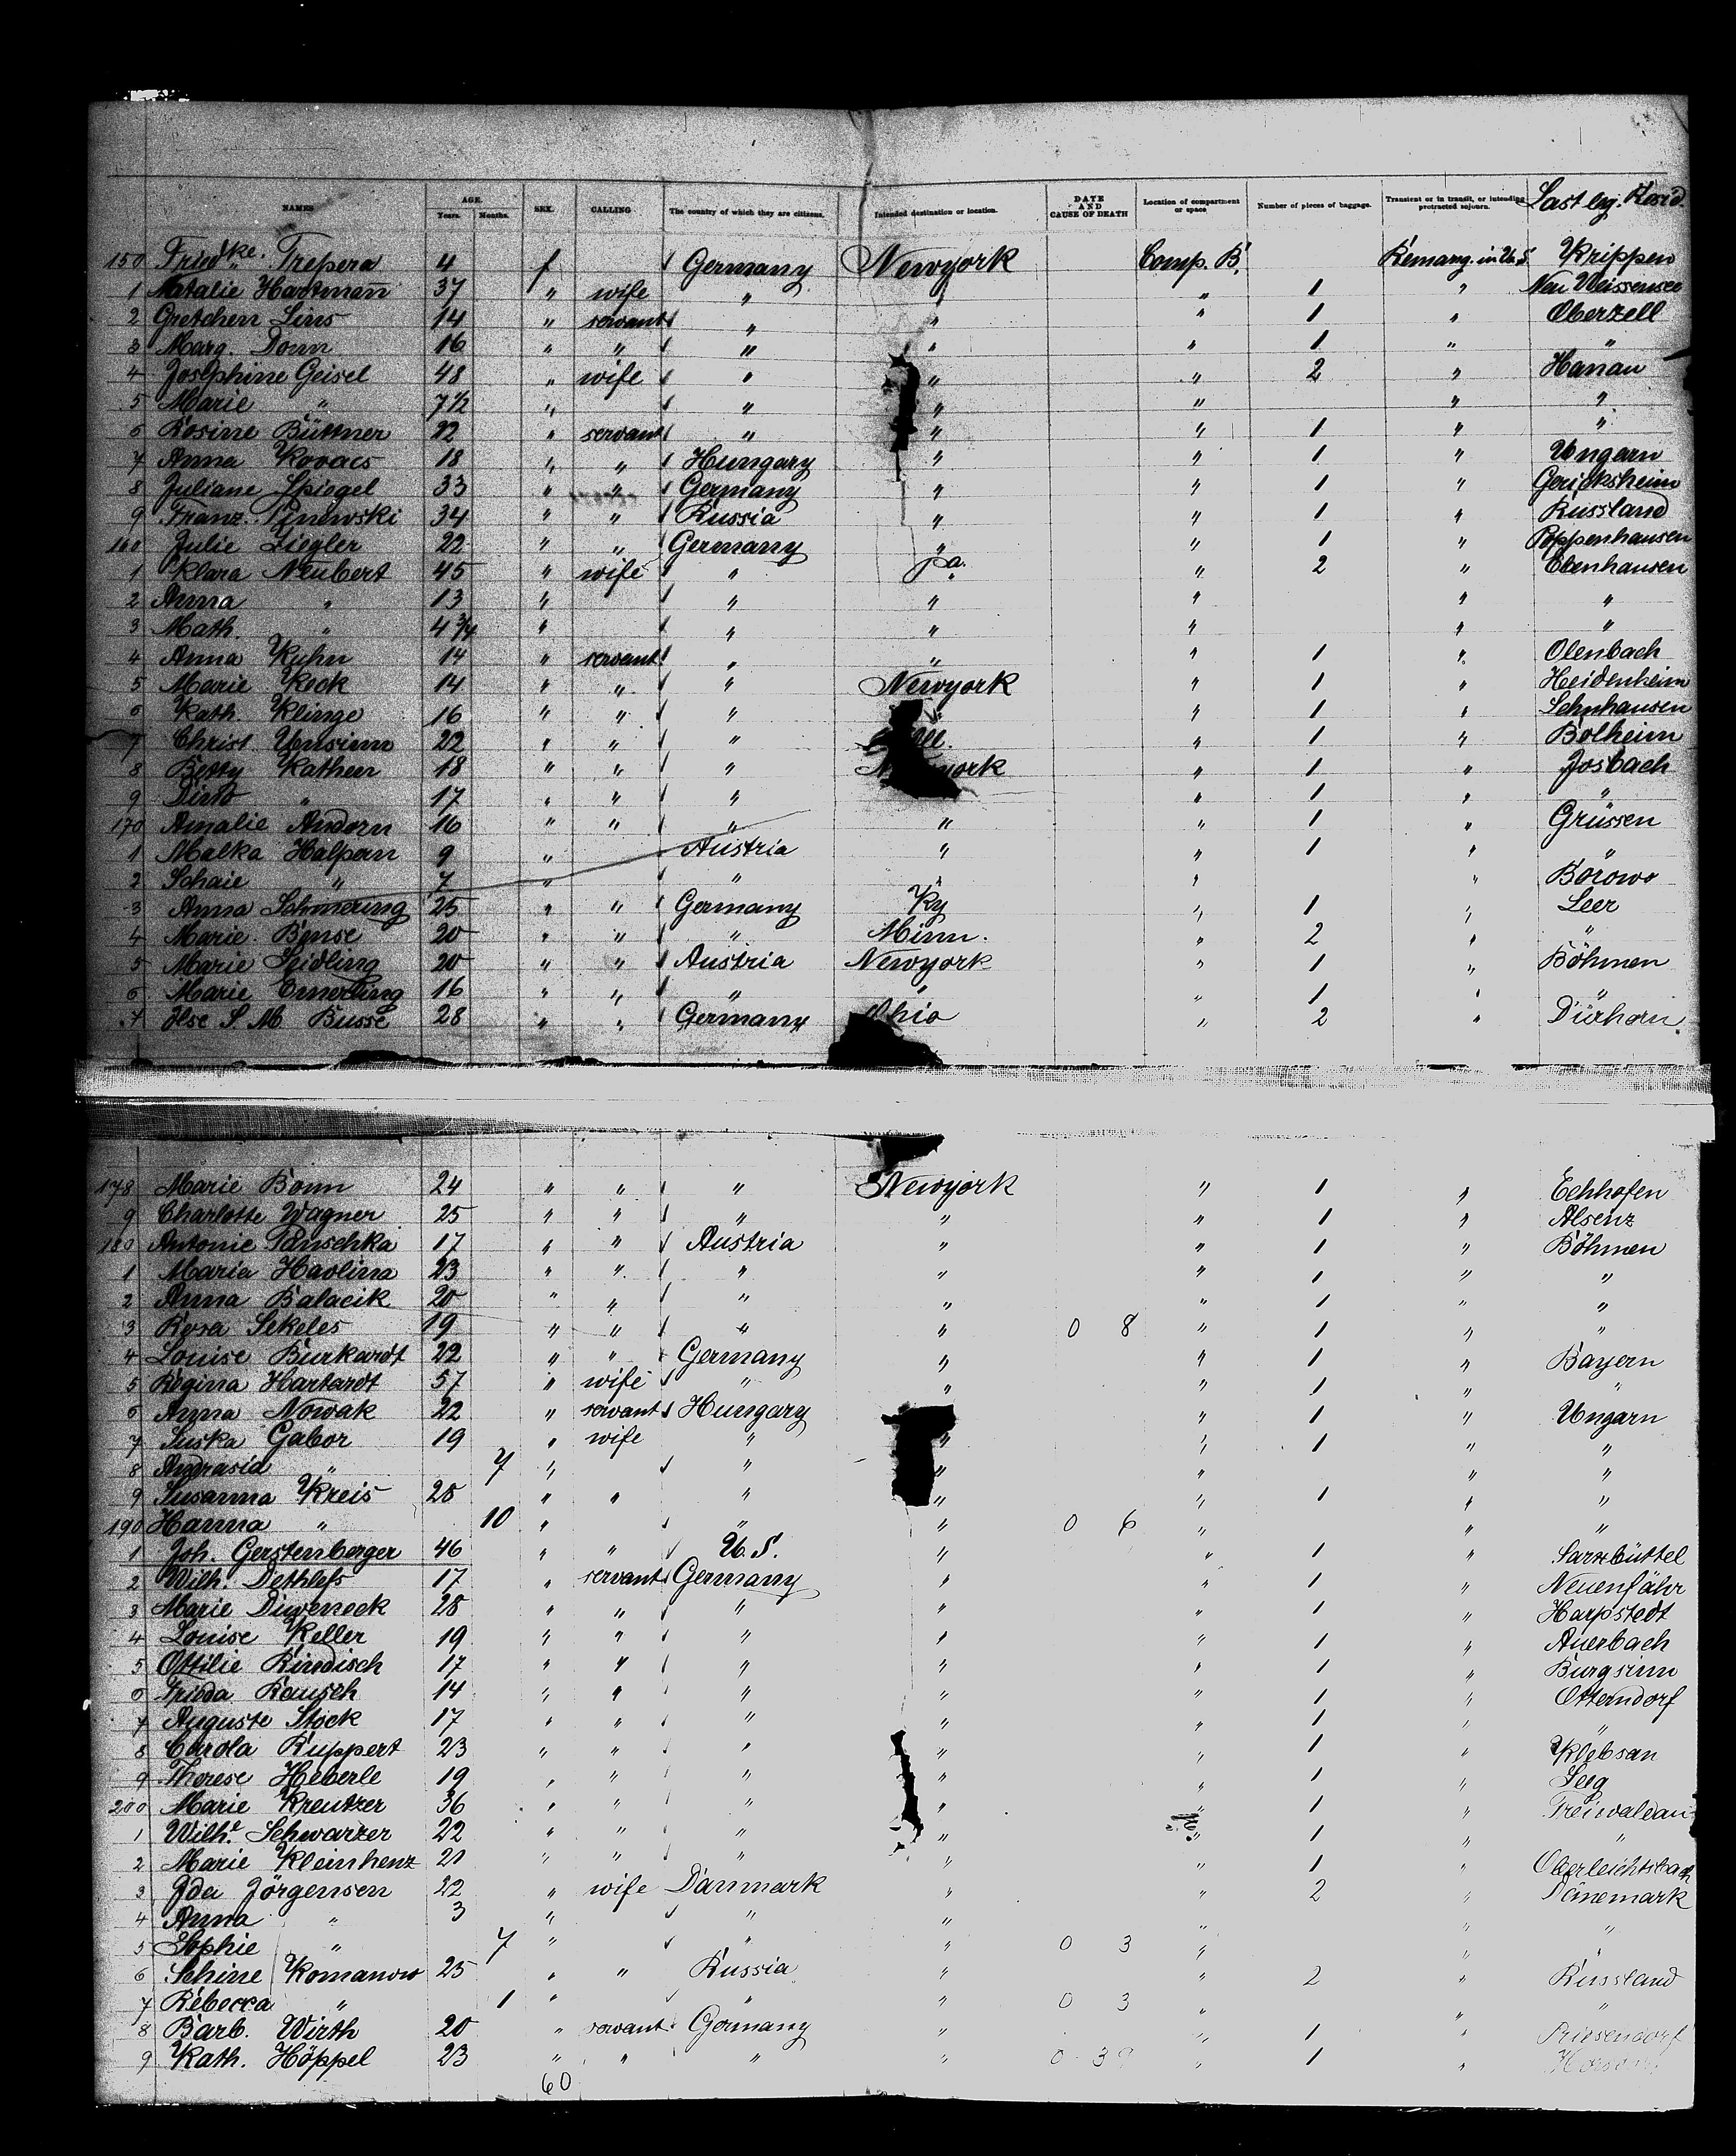 NAMES AGE. Years. Months. SEX. CALLING The country of which they are citizens. Intended destination or location. DATE AND CAUSE OF DEATH Location of compartment or space Number of pieces of baggage. Transient or in transit, or intending protracted sojourn. Last leg. Resid.
150 Friedke. Trepera 4 f Germany Newyork Comp. B. Remang. in U.S. Krippen
1 Natalie Hartmann 37 " wife " " " 1 " Neu Weissensee
2 Gretchen Lins 14 " servant " " " 1 " Oberzell
3 Marg. Donn 16 " " " " " 1 " "
4 Josephine Geisel 48 " wife " " " 2 " Hanau
5 Marie " 7 1/2 " " " " " "
6 Rosine Büttner 22 " servant " " " 1 " "
7 Anna Kovacs 18 " " Hungary " " 1 " Ungarn
8 Juliane Spiegel 33 " " Germany " " 1 " Gericksheim
9 Franz. 34 " " Russia " " 1 " Russland
160 Julie Ziegler 22 " " Germany " " 1 " Poppenhausen
1 Klara Neubert 45 " wife " Pa. " 2 " Ebenhausen
2 Anna " 13 " " " " " "
3 Math. " 4 3/4 " " " " " "
4 Anna Kuhn 14 " servant " " " 1 " Olenbach
5 Marie Keck 14 " " " Newyork " 1 " Heidenheim
6 Kath. Klinge 16 " " " " " 1 " Sehnhausen
7 Christ. Unsinn 22 " " " Ill. " 1 " Bolheim
8 Betty Katheer 18 " " " Newyork " 1 " Josbach
9 Dina " 17 " " " " " 1 " "
170 Amalie Andorn 16 " " " " " 1 " Grüssen
1 Malka Halpern 9 " Austria " " 1 " "
2 Schaie " 7 " " " " " Borowo
3 Anna Schmering 25 " " Germany Ky " 1 " Leer
4 Marie Bense 20 " " " Minn. " 2 " "
5 Marie Seidling 20 " " Austria Newyork " 1 " Böhmen
6 Marie Emerling 16 " " " " " 1 " "
7 Ilse S. M. Busse 28 " " Germany Ohio " 2 " Düxhorn.
178 Marie Bonn 24 " " " Newyork " 1 " Echhofen
9 Charlotte Wagner 25 " " " " " 1 " Alsenz
180 Antonie Panschka 17 " " Austria " " 1 " Böhmen
1 Maria Havlina 23 " " " " " 1 " "
2 Anna Balacik 20 " " " " " 1 " "
3 Rosa Sekeles 19 " " " " 0 8 " 1 " "
4 Louise Burkardt 22 " " Germany " " 1 " Bayern
5 Regina Hartardt 57 " wife " " " 1 " "
6 Anna Nowak 22 " servant Hungary " " 1 " Ungarn
7 Suska Gabor 19 " wife " " " 1 " "
8 Andrasia " 7 " " " " " "
9 Susanna Kreis 28 " " " " " 1 " "
190 Hanna " 10 " " " 0 6 " " "
1 Joh. Gerstenberger 46 " " U. S. " " 1 " Sarxbüttel
2 Wilh. Dethlefs 17 " servant Germany " " 1 " Neuenfähr
3 Marie Diweneck 28 " " " " " 1 " Harpstedt
4 Louise Keller 19 " " " " " 1 " Auerbach
5 Ottilie Kindisch 17 " " " " " 1 " Burgsinn
6 Frieda Rausch 14 " " " " " 1 " Otterndorf
7 Auguste Stock 17 " " " " " 1 " "
8 Carola Ruppert 23 " " " " " 1 " Klebsan
9 Therese Heberle 19 " " " " " 1 "
200 Marie Kreutzer 36 " " " " " 1 " Freiwaldau
1 Wilhe. Schwarzer 22 " " " " " 1 " "
2 Marie Kleinhenz 21 " " " " " 1 " Oberleichtsbach
3 Ida Jörgensen 22 " wife Danmark " " 2 " Dänemark
4 Anna " 3 " " " " " "
5 Sophie " 7 " " " 0 3 " "
6 Schine Komanow 25 " " Russia " " 2 " Russland
7 Rebecca " 1 " " " 0 3 " " "
8 Barb. Wirth 20 " servant Germany " " 1 " Priesendorf
9 Kath. Höppel 23 " " " " 0 39 " 1 "
60